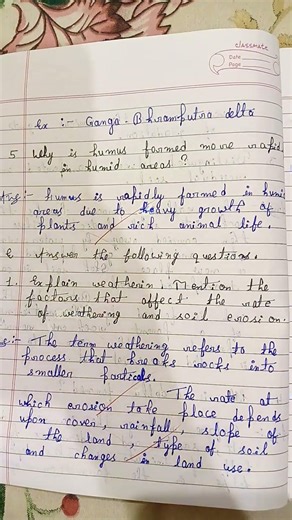 classmate
Date
Page
Ex :- Ganga - Bhramputra delta
5 Why is humus formed more rapid
in humid areas ?
Ans :- humus is rapidly formed in humid
areas due to heavy growth of
plants and rich animal life.
E Answer the following questions.
1. Explain weatherin. Mention the
factors that affect the rate
of weathering and soil erosion.
:- The term weathering refers to the
process that breaks rocks into
smaller particals.
The rate at
which erosion take place depends
upon cover, rainfall, slope of
the land, type of soil
and changes in land use.